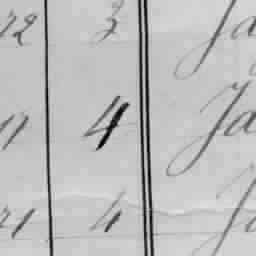 72 3 Ja
17 4 Ja
21 4 Ja